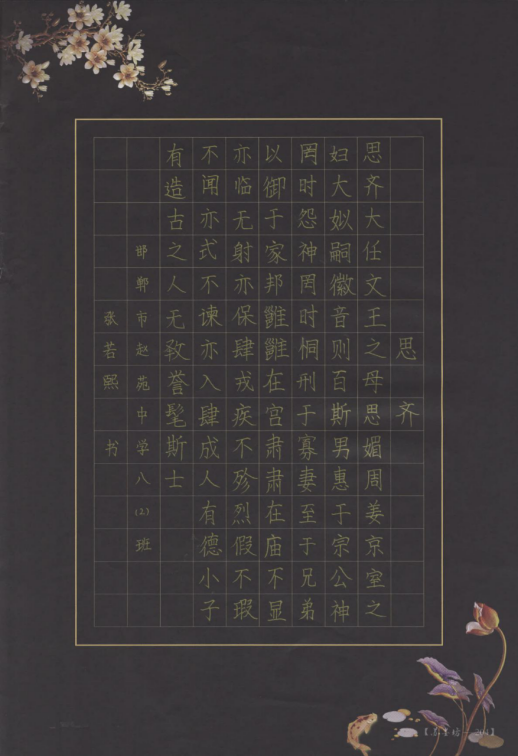 思齐
思齐大任文王之母思媚周姜京室之
妇大姒嗣徽音则百斯男惠于宗公神
罔时怨神罔时恫刑于寡妻至于兄弟
以御于家邦雝雝在宫肃肃在庙不显
亦临无射亦保肆戎疾不殄烈假不瑕
不闻亦式不谏亦入肆成人有德小子
有造古之人无斁誉髦斯士
邯郸市赵苑中学八(2)班
张若熙 书